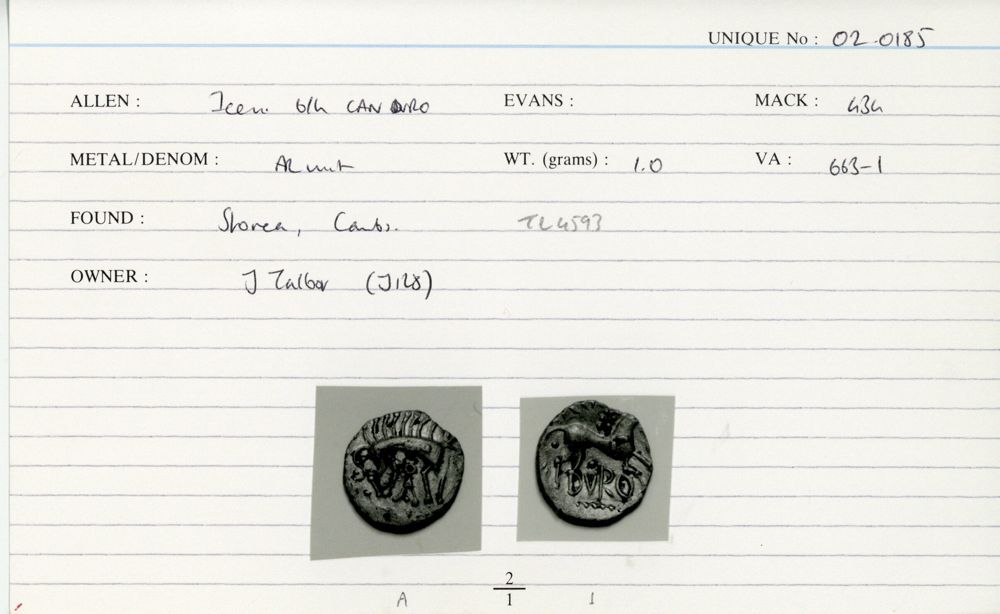 UNIQUE No : 02.0185
ALLEN : Iceni b/h CAN DURO EVANS : MACK : 434
METAL/DENOM : AR unit WT. (grams) : 1.0 VA : 663-1
FOUND : Stonea, Cambs. TL 4593
OWNER : J Talbot (J128)
DURO
2
A 1 1